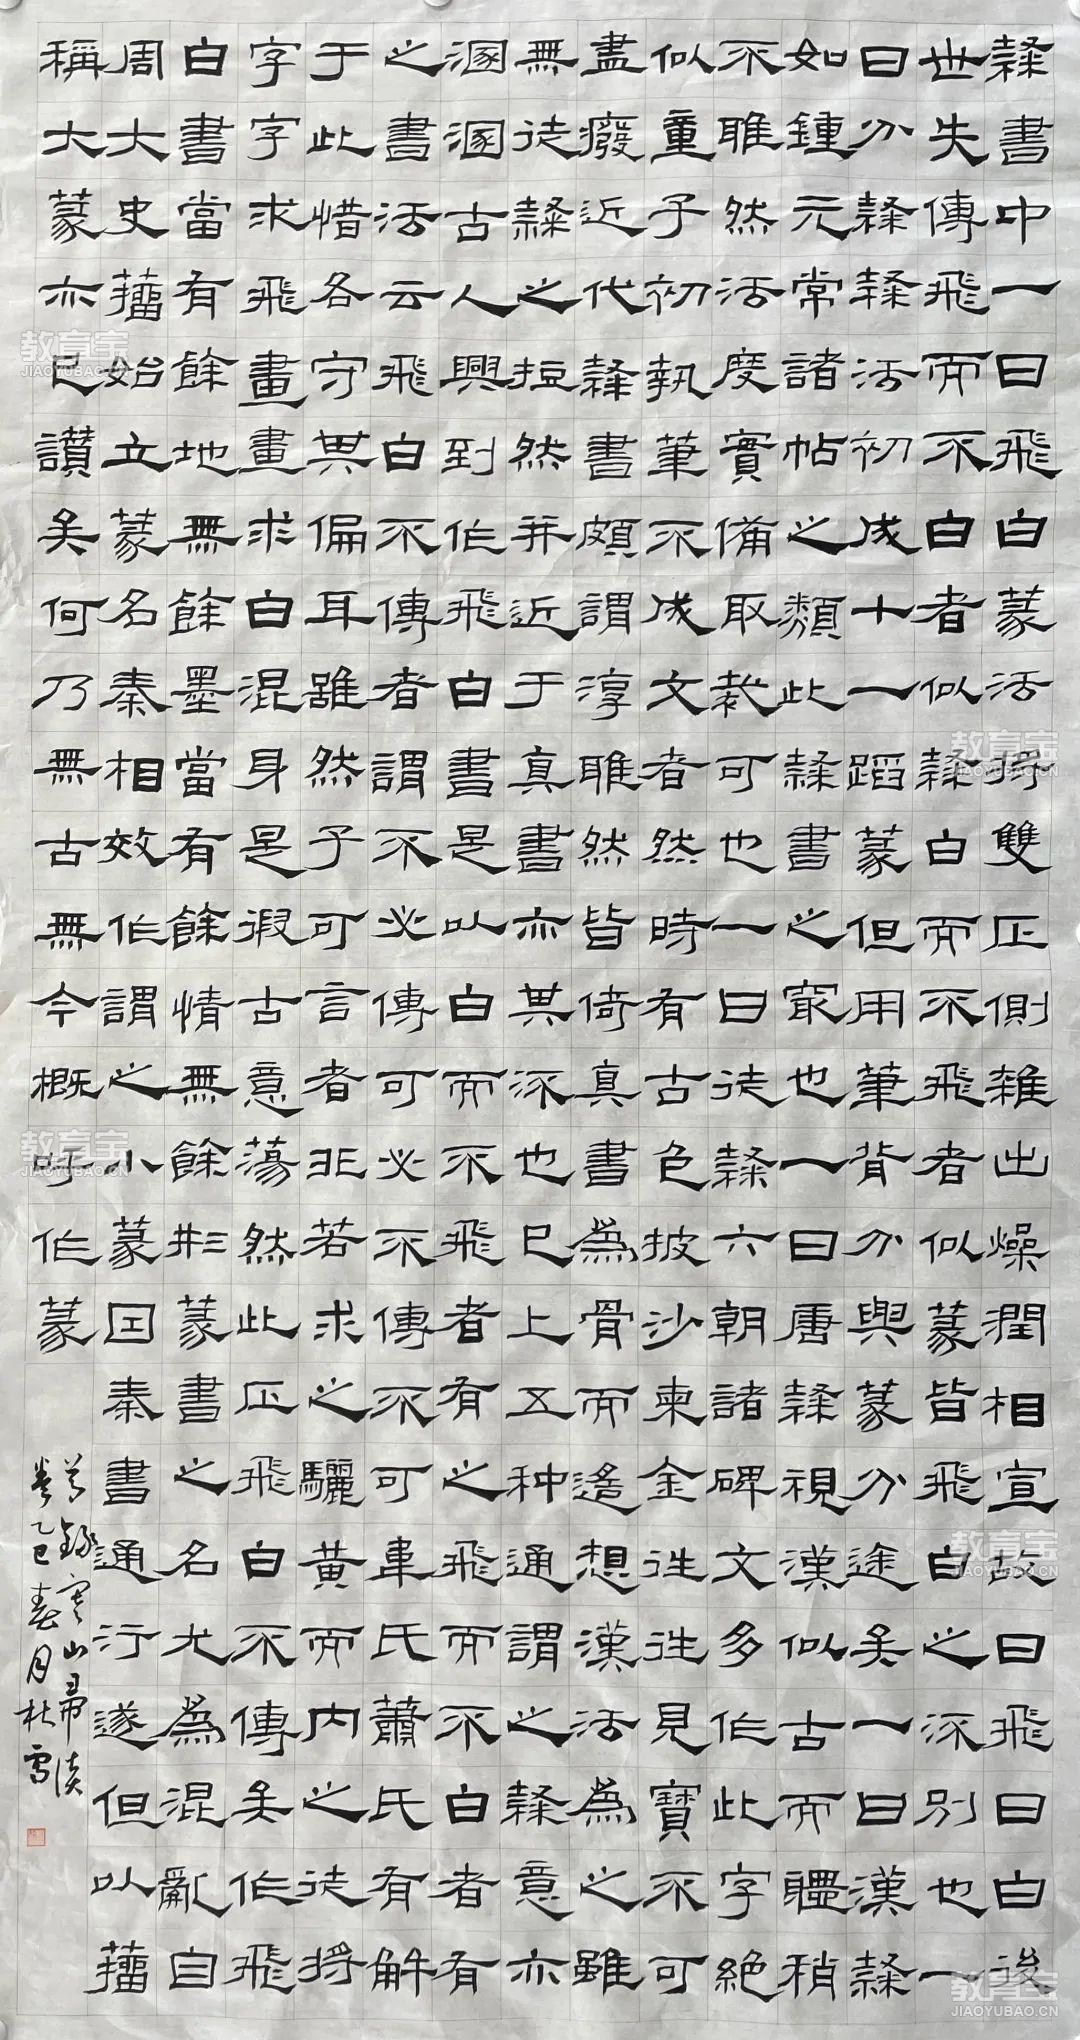 隸書中一曰飛白篆法将雙正側雜出燥潤相宣故曰飛曰白後
世失傳飛而不白者似隸白而不飛者似篆皆飛白之派別也一
曰分隸隸法初成十一蹈篆但用筆背分與篆分途矣一曰漢隸
如鍾元常諸帖之類此隸書之最也一曰唐隸視漢似古而體稍
不雎然法度實備取裁可也一曰徒隸六朝諸碑文多作此字絕
似重子初執筆不成文者然時有古色披沙柬金往往見寶不可
盡癈近代隸書頗謂淳雎然皆倚真書為骨而遙想漢法為之雖
無徒隸之拉然并近于真書亦其派也已上五种通謂之隸意亦
溷溷古人興到作飛白書是以白而不飛者有之飛而不白者有
之書法云飛白不傳者謂不必傳可必不傳不可車氏蕭氏有解
于此惜各守其偏耳雖然子可言者非若求之驪黃而内之徒将
字字求飛畫畫求白混身是瑕古意蕩然此正飛白不傳矣作飛
白書當有餘地無餘墨當有餘情無餘形篆書之名尤為混亂自
周大史籀始立篆名秦相效作謂之小篆回秦書通行遂但以籀
稱大篆亦已讃矣何乃無古無今概呼作篆
錄寒山帚談
乙巳春月杜雪
教育宝
JIAOYUBAO.CN
教育宝
JIAOYUBAO.CN
教育宝
JIAOYUBAO.CN
教育宝
JIAOYUBAO.CN
教育宝
JIAOYUBAO.CN